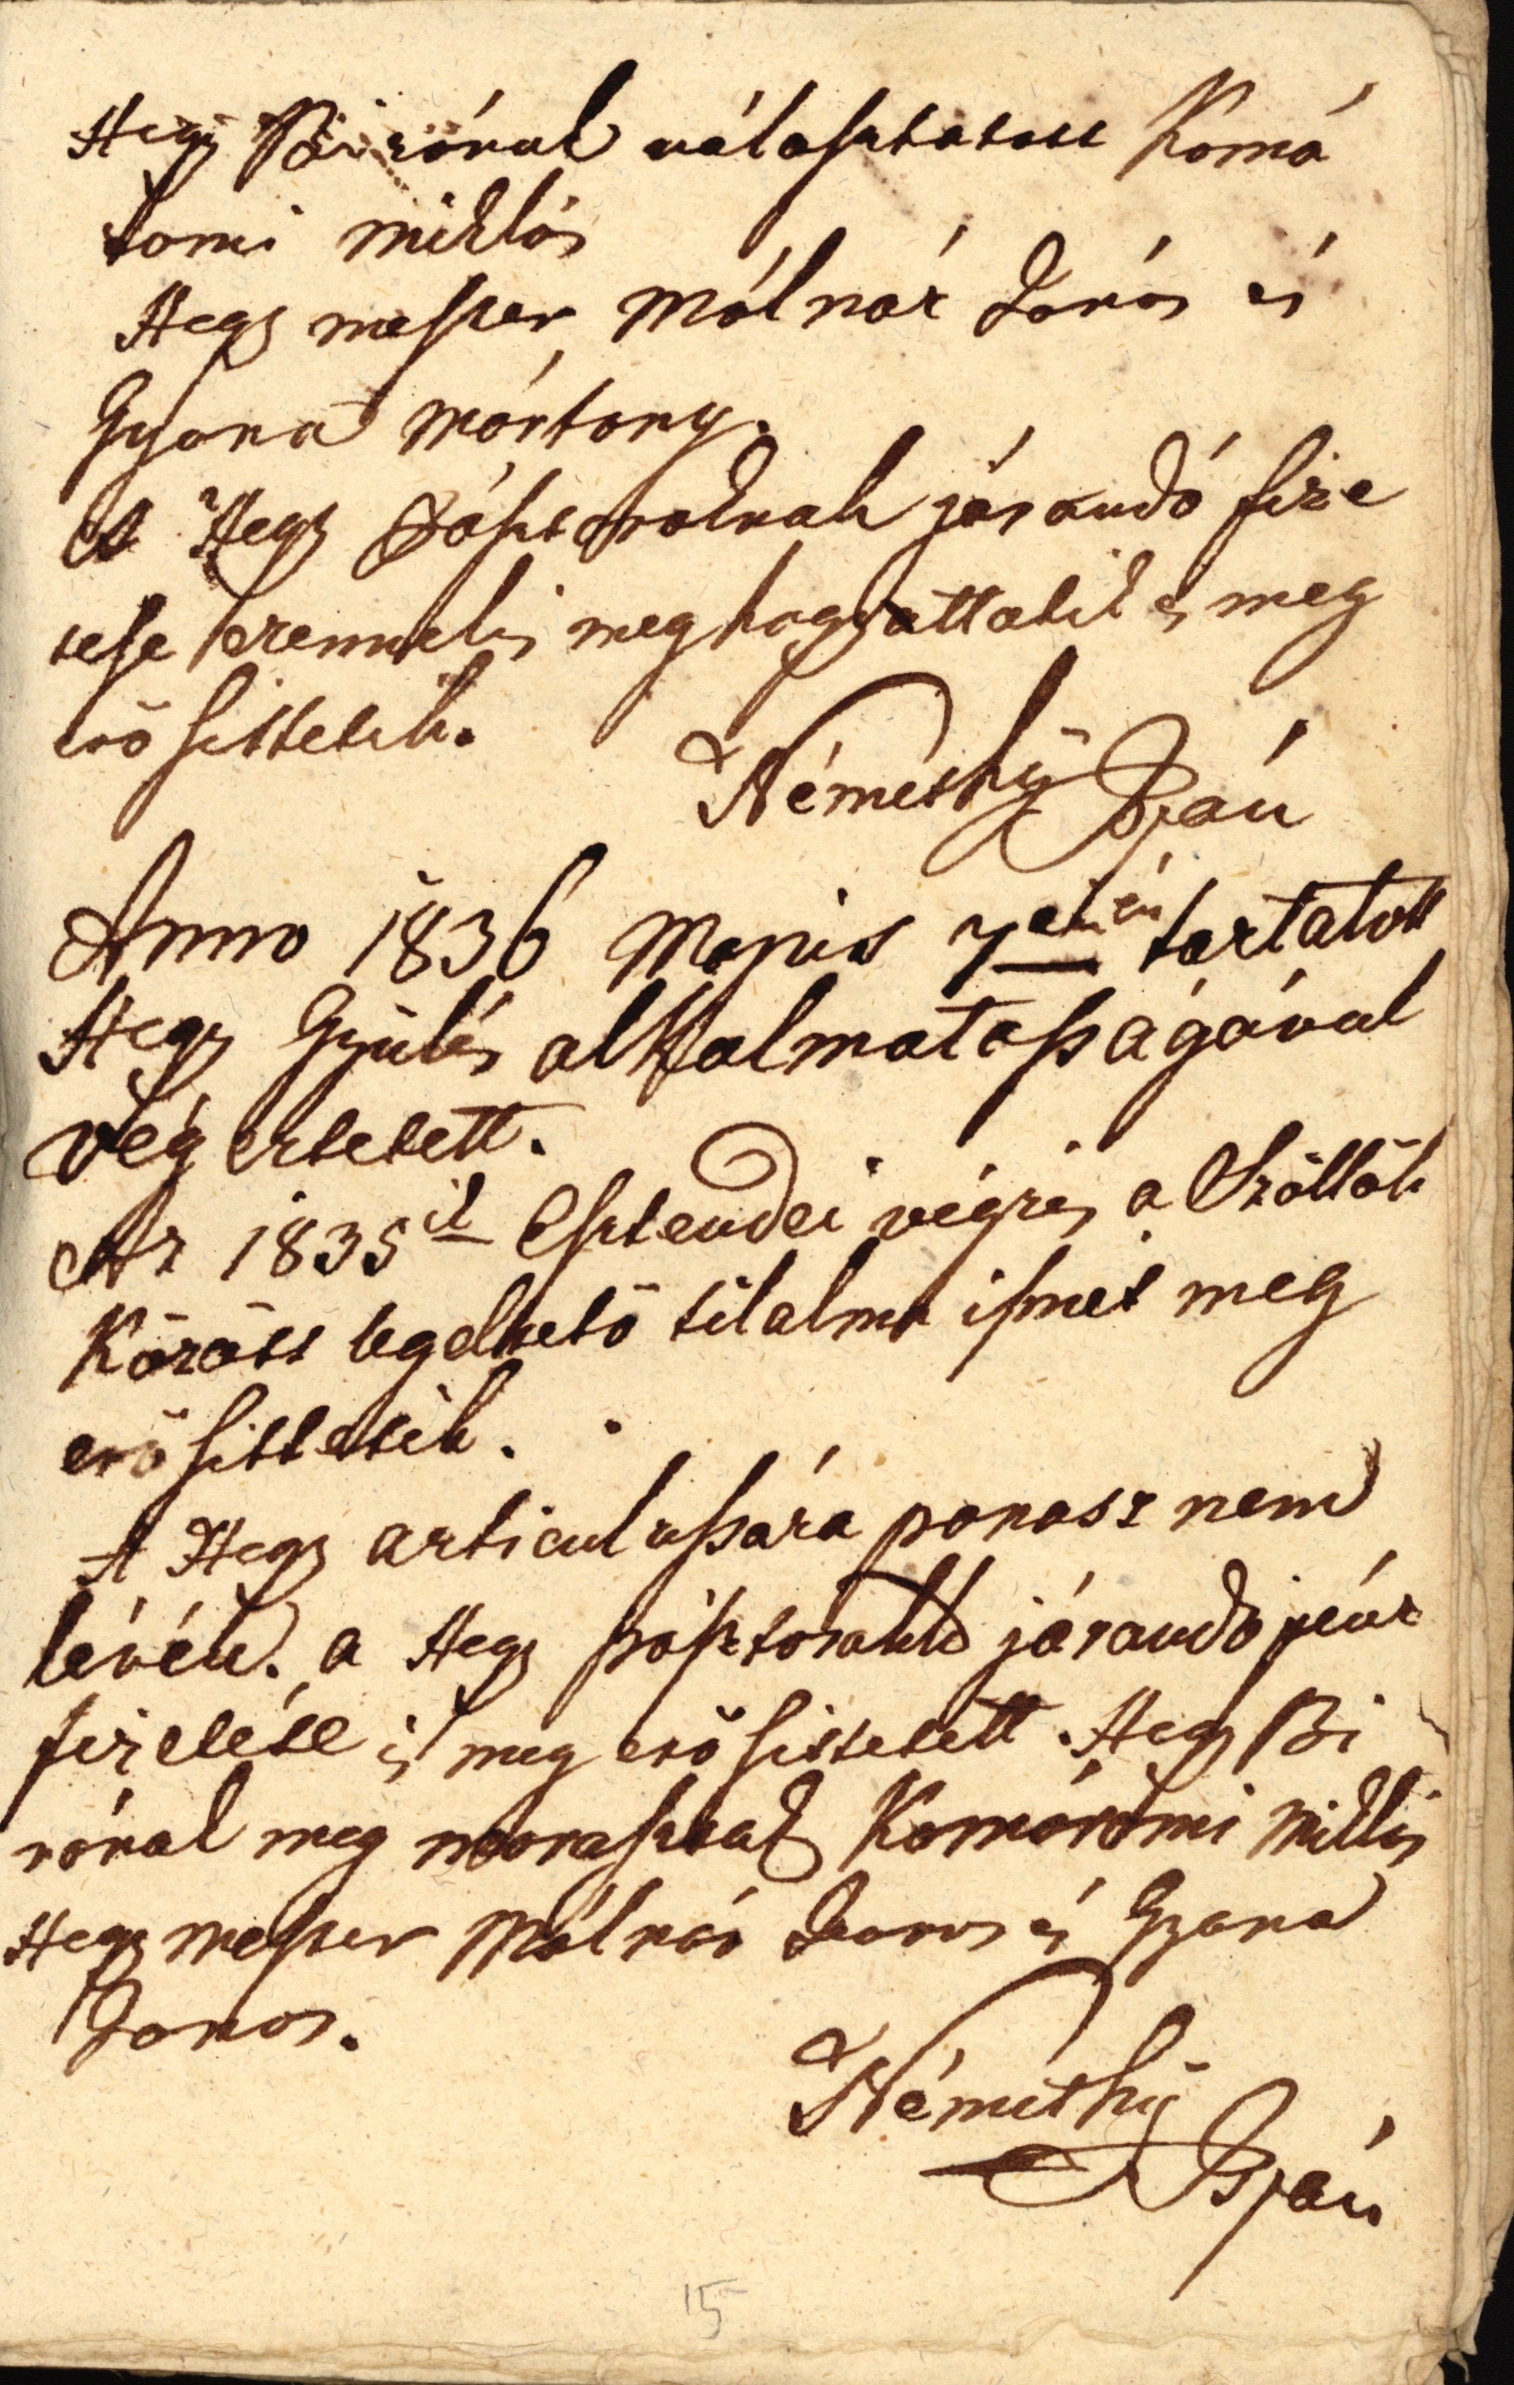 Hegy Birónak választatott Komá
romi Miklós
Hegy mester Mólnár János és
Gyana Mártony.
A Hegy Pásztoroknak járandó fize
tése ezennelis meghagyattatik és meg
erösittetik.
Némethÿ István
Anno 1836 Május 7<sup>ikén</sup> tartatott
Hegy Gyülés alkalmatosságával
Végeztetett.
Az 1835<sup>ik</sup> Esztendei végzés a Szöllök
Között legeltetö tilalma ismét meg
erösittetik.
A Hegy articulussára panasz nem
lévén. a Hegy pásztorokk járandó pénz
fizetése is meg erösittetett. Hegy Bi
rónak meg maraszták Komáromi Miklós
Hegy mester Mólnár Janos és Gyana
Janos.
Némethÿ
István
15